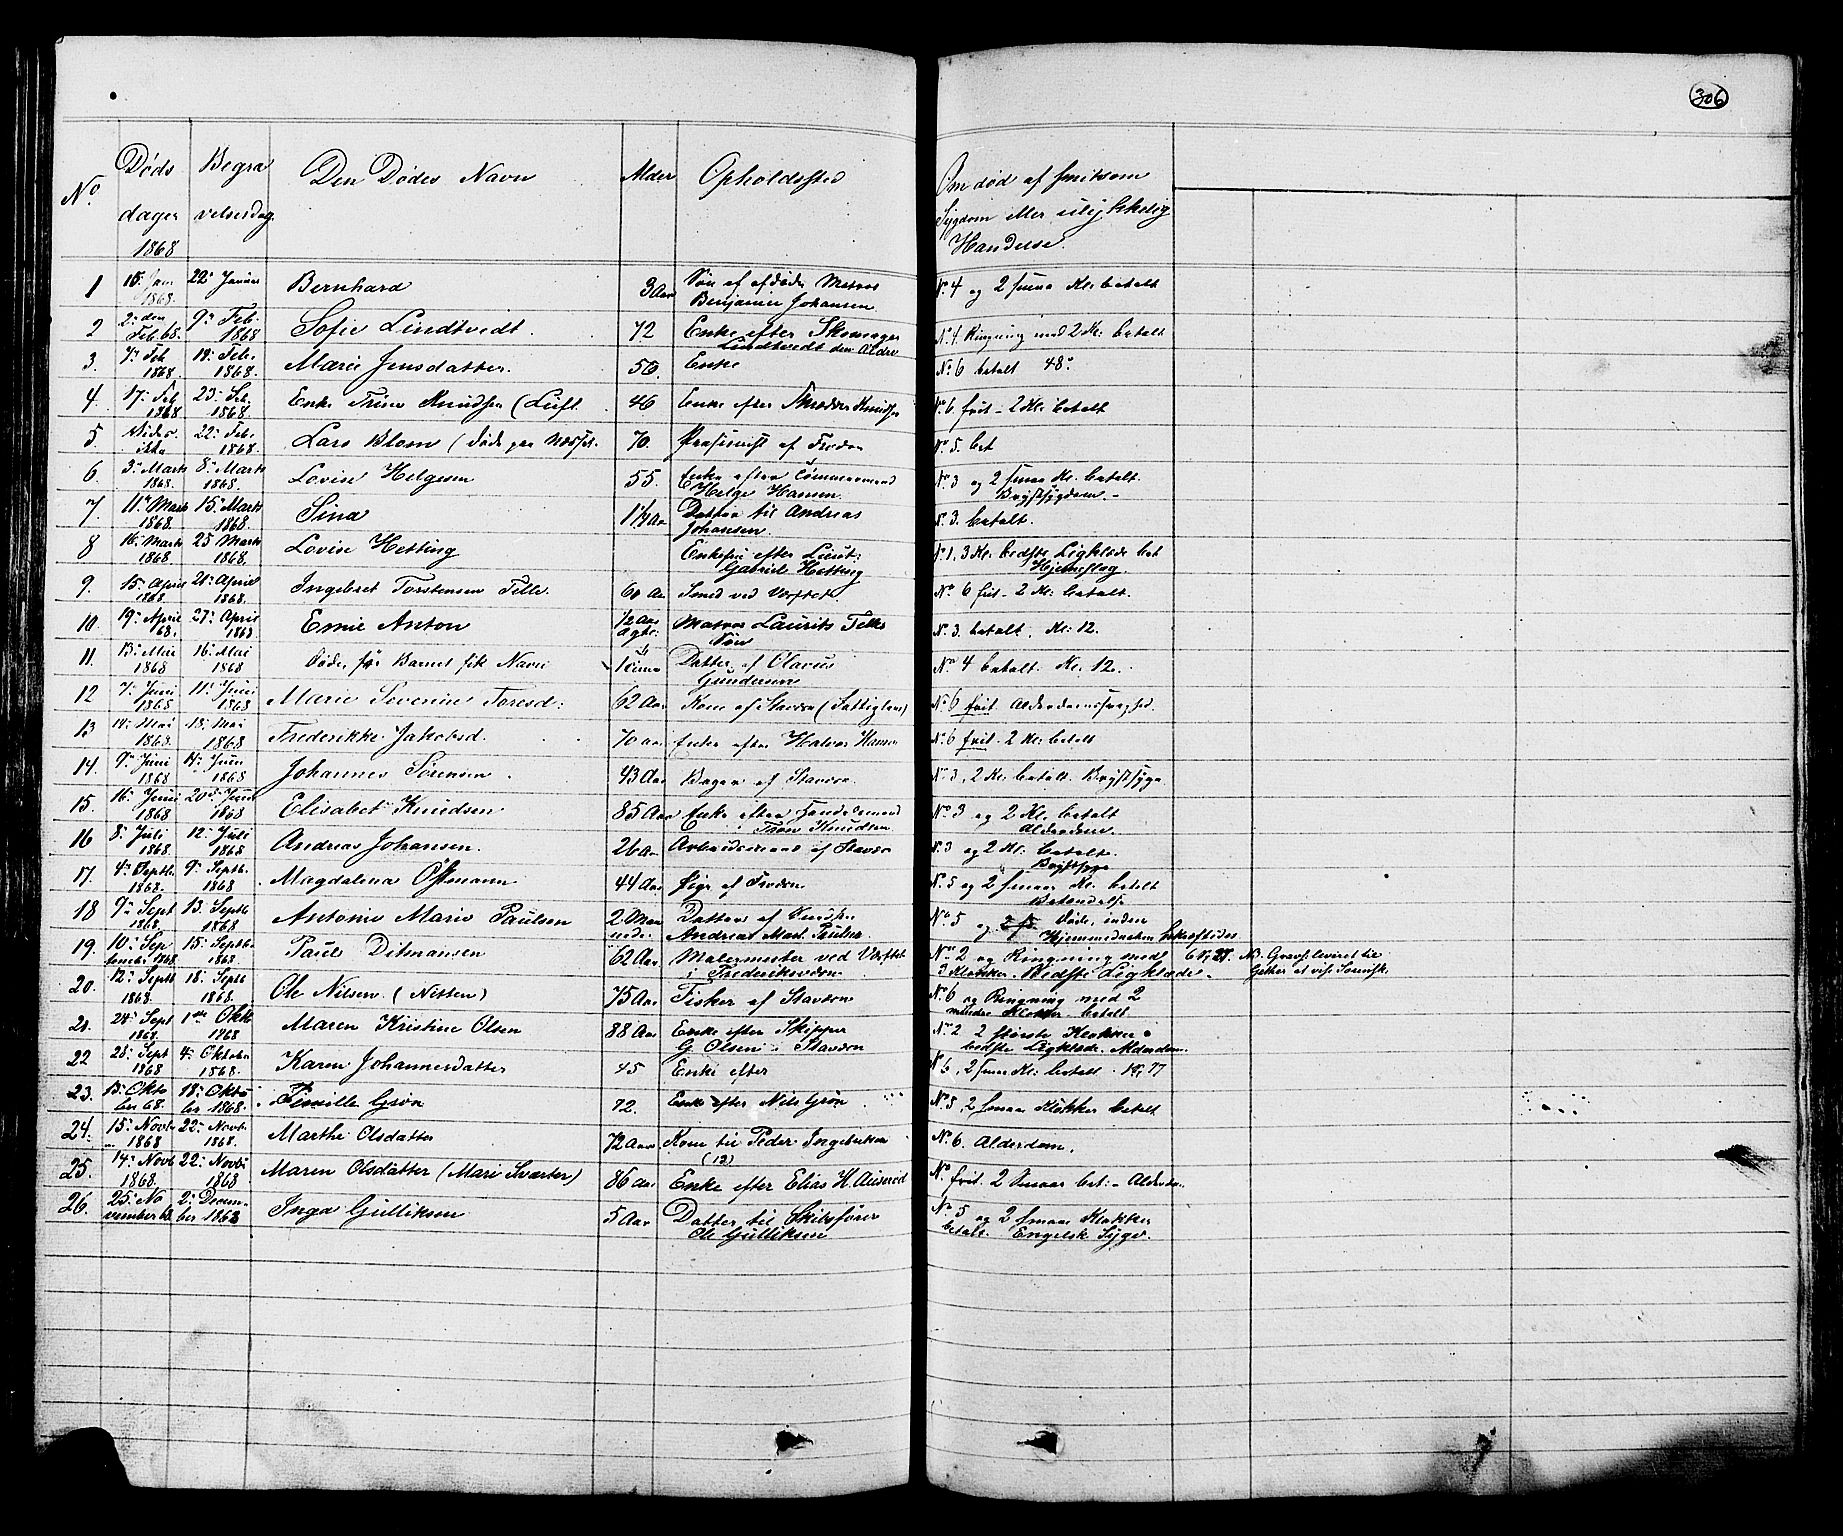 306
No
Døds
dager
1868
Begra
velsesdag
Den Dødes Navn
Alder
Opholdssted
Om død af smitsom
Sygdom eller ulykkelig
Handelse.
1 18: Jan 1868. 22: Januar Bernhard 3 Aar Søn af afdøde Matros Benjamin Johansen No. 4 og 2 smaa Kl: betalt
2 2: den Feb. 68. 9: Feb. 1868 Sofie Lindtvedt. 72 Enke efter Skomager Lindtvedt den Ældre No. 4. Ringning med 2 Kl: betalt
3. 7: Feb 1868. Feb. 1868. Marie Jensdatter. 56. Enke No. 6 betalt 48
4. 17: Feb 1868 23: Feb. 1868 Enke Trine Knudsen (Luft 46 Enke efter Knudsen No. 6. frit - 2 Kl. betalt
5. 22: Feb. 1868. Lars Blom (døde paa 70. af No. 5. bet
6. 3: Marts 1868. 8: Marts 1868. Lovise Helgesen 55. Enke efter Tømmermand Helge Hansen No. 3 og 2 smaa Kl. betalt. Brystsygdom -
7. 11: Marts 1868. 15: Marts 1868. Sina 1 Aar Datter til Andreas Johansen. No. 3. betalt.
8 16: Marts 1868. 25 Marts 1868. Lovise Hetting Enkefru efter Lieut: Gabriel Hetting No. 1, 3 Kl. bedste Ligklæde bet
9. 15. April 1868 21: April 1868. Ingebret Torstensen Telle. 60 Aar Smed ved Værftet No. 6 frit - 2 Kl: betalt.
10. 19: April 68. 27: April 1868 Emil Anton 1/2 Aar Matros Laurits Telles Søn No. 3. betalt. Kl: 12.
11. 13: Mai 1868 16: Mai 1868 Døde før Barnet fik Navn 1 Time Datter af Olavus Gundersen No. 4 betalt. Kl. 12.
12 7: Juni 1868 11: Juni 1868 Marie Severine Toresd: 62 Aar Kone af Stavern (Fattiglem) No. 6 frit.
13 14: Mai 1868. 18: Mai 1868 Frederikke Jakobsd. 70 aar Enke efter Halvor Hansen No. 6 frit. 2 Kl: betalt
14. 9: Juni 1868 14: Juni 1868 Johannes Sørensen. 43 Aar Bager af Stavern No. 3, 2 Kl. betalt. Brystsyge
15. 16: Juni 1868 20: Juni 1868 Elisabet Knudsen 85 Aar Enke efter Handelsmand Tron Knudsen No. 3 og 2 Kl. betalt Alderdom
16 8: Juli 1868. 12: Juli 1868 Andreas Johansen. 26 Aar Arbeidsmand af Stavern No. 3 og 2 Kl: betalt. Brystsyge
17. 4: Septb. 1868. 9: Septb. 1868 Magdalena Østmann 44 Aar Pige af No. 5 og 2 smaa Kl. betalt Betændelse
18 9: Sept 1868. 13. Septb 1868 Antonie Marie Paulsen 2 Maaneder. Datter af Andreas Mart. Paulsen. No. 5 og Døde, inden Hjemmedaaben bekræftedes
19. 10: September 1868. 15: Septb. 1868. Paul Ditmansen 62 Aar Malermester ved Værftet i Frederiksværn No. 2 og Ringning med 3 Klokker. Bedste Ligklæde.
20. 12: Septb 1868 18: Septb 1868. Ole Nilsen (Netten) 75 Aar Fisker af Stavern No. 6 og Ringning med 2 mindre Klokker. betalt
21. 24: Sept 1868. 1ste Oktb 1868 Maren Kristine Olsen 88 Aar Enke efter Skipper G. Olsen i Stavern No. 2 2 største Klokker bedste Ligklæde. Alderdom.
22 28: Sept 1868 4: Oktober 1868. Karen Johannesdatter 45 Enke efter No. 6, 2 smaa Kl: betalt.
23. 13: Oktober 68. 18: Oktober 1868. Grøn 72. Enke efter Nils Grøn No. 5, 2 smaa Klokker betalt
24. 15: Novb. 1868 22: Novb. 1868. Marthe Olsdatter 72 Aar Kone til Peder Ingebretsen No. 6. Alderdom.
25. 14: Novb 1868. 22: Novb: 1868 Maren Olsdatter (Mari Svarter) 86 aar. Enke efter Elias H. No. frit. 2 Smaa bet: - Alderdom.
26. 25: November 68. 2: December 1868 Inga Gulliksen 5 Aar Datter til Skibsfører Ole Gulliksen No. 5 og 2 smaa Klokker betalt. Engelsk Syge.